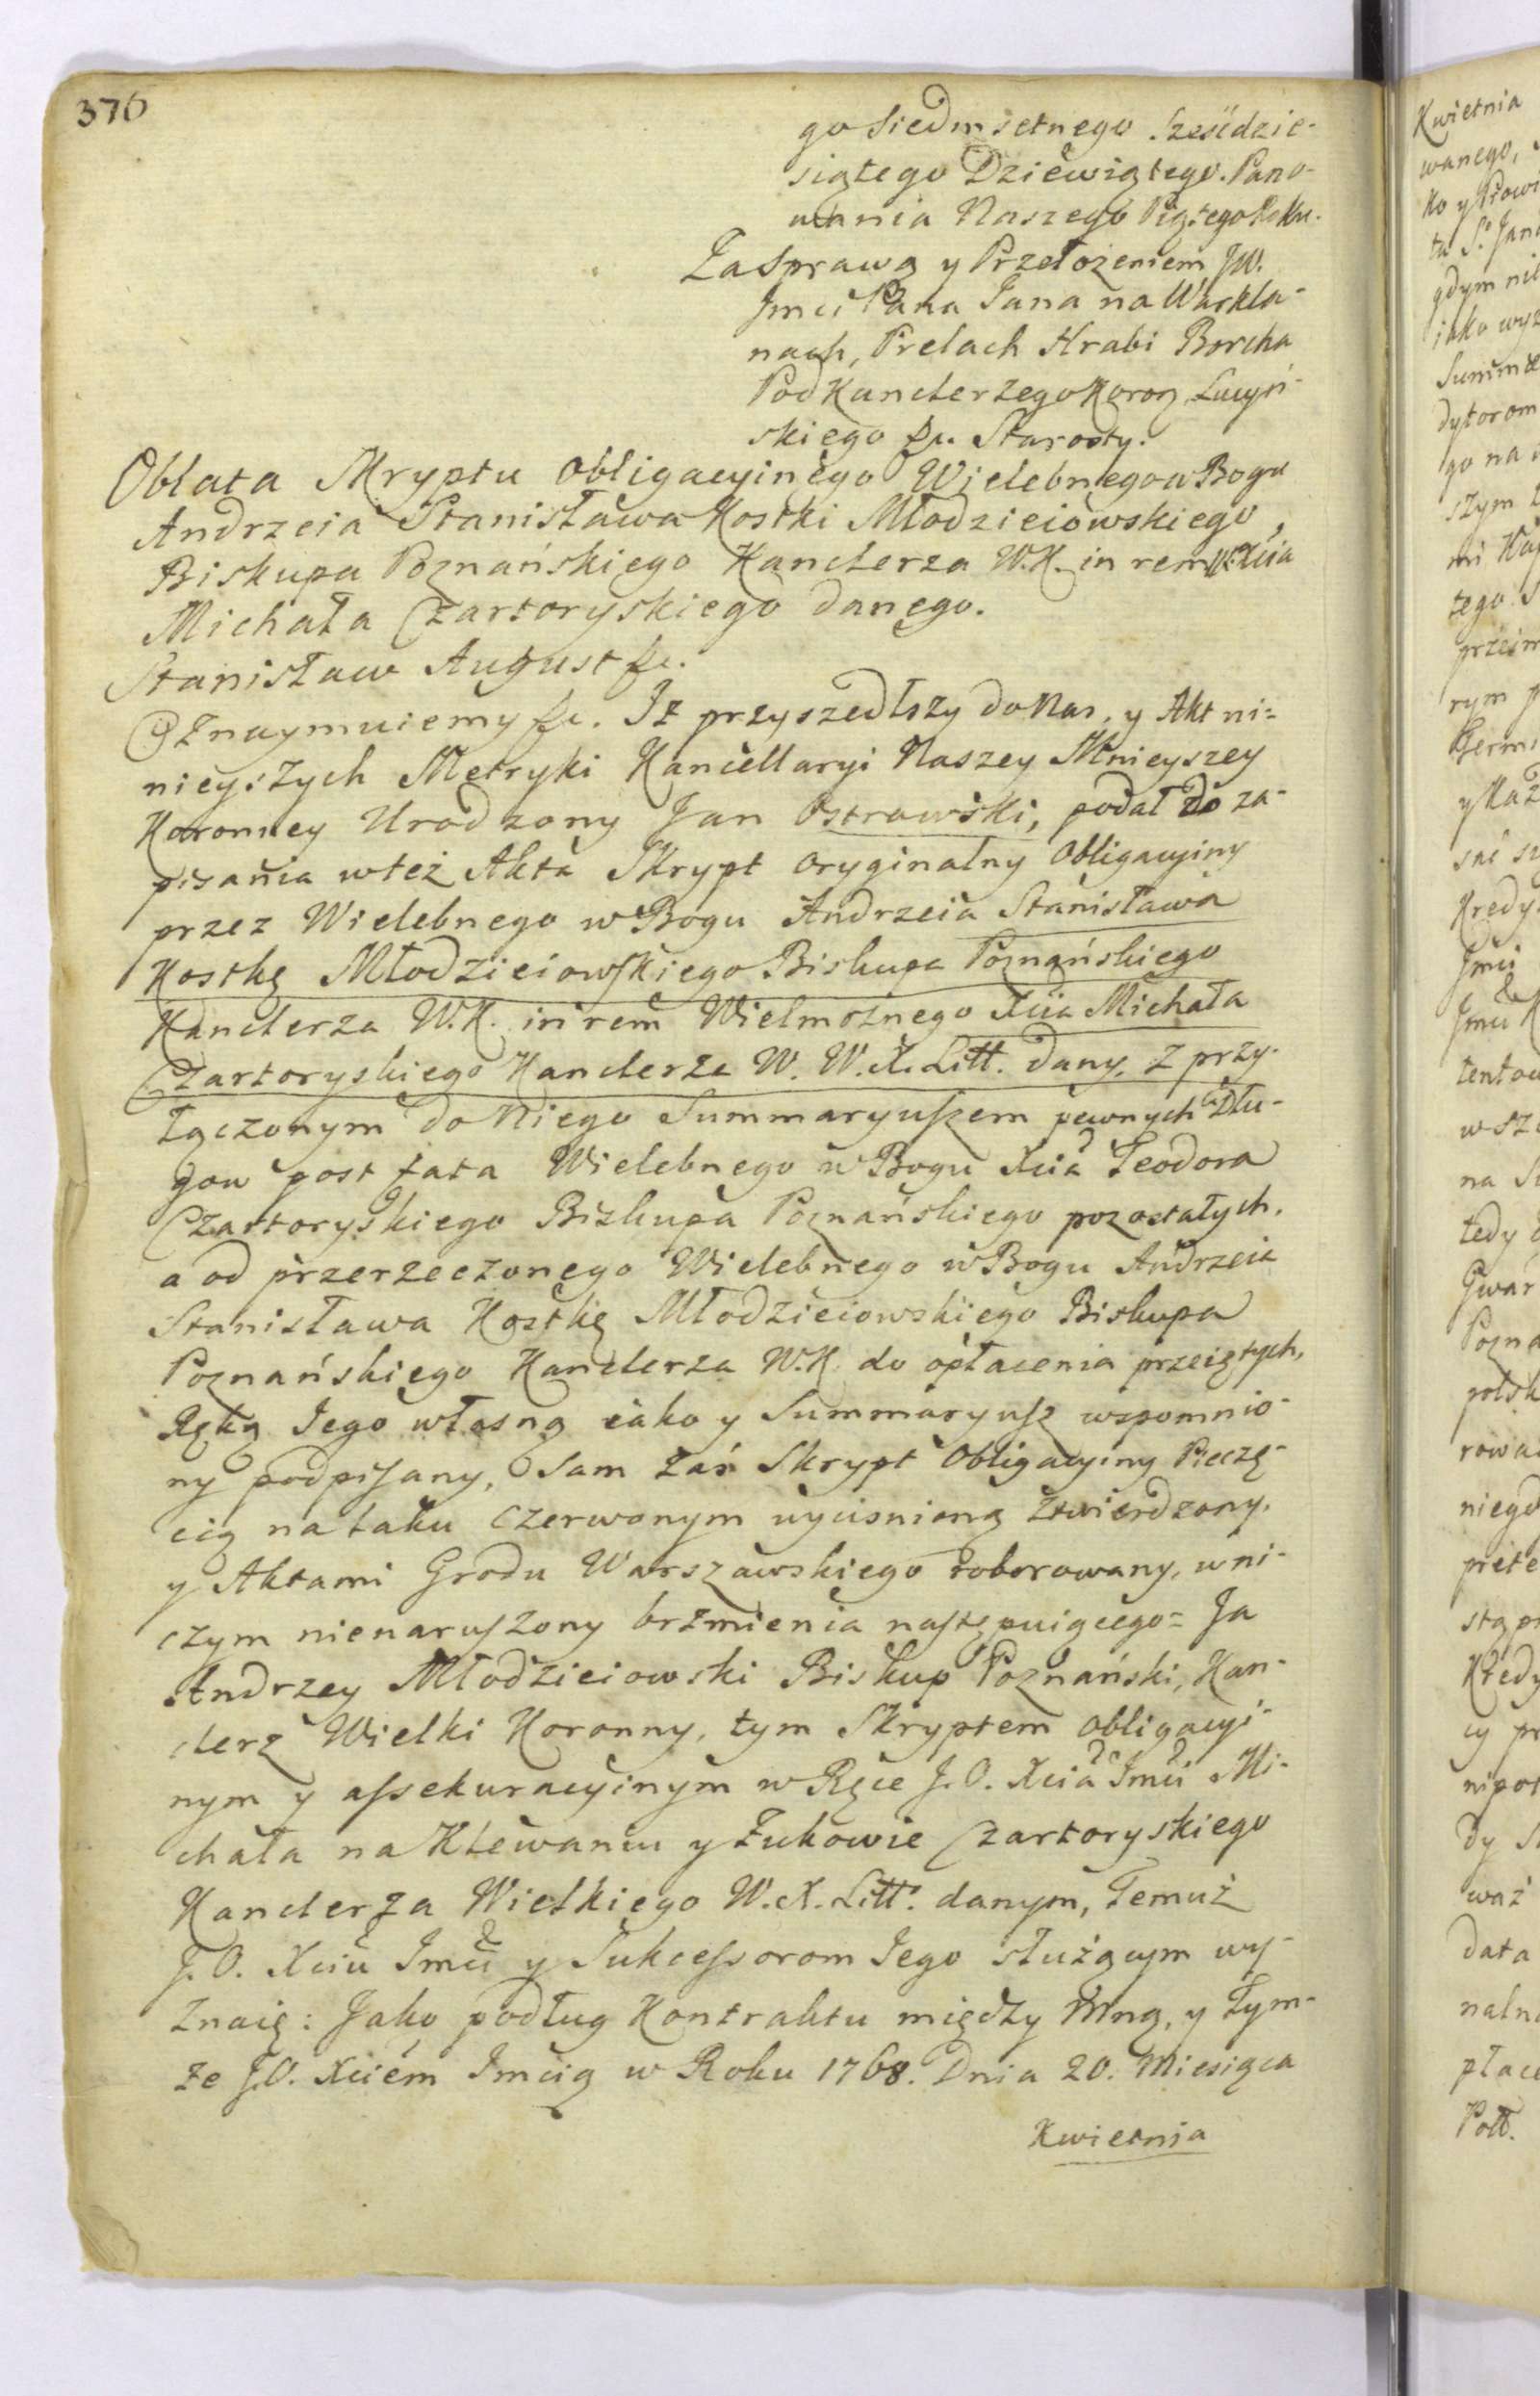 376
go Siedmsetnego Sześćdzie-
siątego Dziewiątego. Pano-
wania Naszego Piątego Roku.
Za Sprawą y Przełożeniem JW.
Jmci Pana Jana na Warkla-
nach, Prelach Hrabi Borcha
Podkanclerzego Koron, Lucyń-
skiego &c. Starosty.
Oblata Skryptu Obligacyinego Wielebnego w Bogu
Andrzeia Stanisława Kostki Młodzieiowskiego,
Biskupa Poznańskiego Kanclerza W.K. in rem W. Xcia
Michała Czartoryskiego danego.
Stanisław August &c.
Oznaymuiemy &c. Iż przyszedłszy do Nas, y Akt ni-
nieyszych Metryki Kancellaryi Naszey Mnieyszey
Koronney Urodzony Jan Ostrowski, podał do za-
pisania w też Akta Skrypt oryginalny Obligacyiny
przez Wielebnego w Bogu Andrzeia Stanisława
Kostkę Młodzieiowskiego Biskupa Poznańskiego
Kanclerza W.K. in rem Wielmożnego Xcia Michała
Czartoryskiego Kanclerza W. W. X. Litt. dany, z przy-
łączonym do Niego Summaryuszem pewnych Dłu-
gow post fata Wielebnego w Bogu Xcia Teodora
Czartoryskiego Biskupa Poznańskiego pozostałych,
a od przerzeczonego Wielebnego w Bogu Andrzeia
Stanisława Kostkę Młodzieiowskiego Biskupa
Poznańskiego Kanclerza W.K. do opłacenia przeiętych,
Ręką Jego własną iako y Summaryusz wspomnio-
ny podpisany, Sam zaś Skrypt Obligacyiny Pieczę-
cią na laku Czerwonym wyciśnioną ztwierdzony,
y Aktami Grodu Warszawskiego roborowany, w ni-
czym nienaruszony brzmienia następuiącego = Ja
Andrzey Młodzieiowski Biskup Poznański, Kan-
clerz Wielki Koronny, tym Skryptem obligacyi-
nym y assekuracyinym w Ręce J.O. Xcia Jmci Mi-
chała na Klewaniu y Żukowie Czartoryskiego
Kanclerza Wielkiego W. X. Litt. danym, Temuż
J.O. Xciu Jmci y Sukcessorom Jego służącym wy-
znaię: Jako podług Kontraktu między Mną, y Tym-
że J.O. Xciem Jmcią w Roku 1768. Dnia 20. Miesiąca
Kwietnia
Kwietnia
wanego,
gdym
iako
dytorom
go na
szym
tego
rym
Kredy
na
tedy
rowa
niegd
Kredy
cy
dy
data
naln
płace